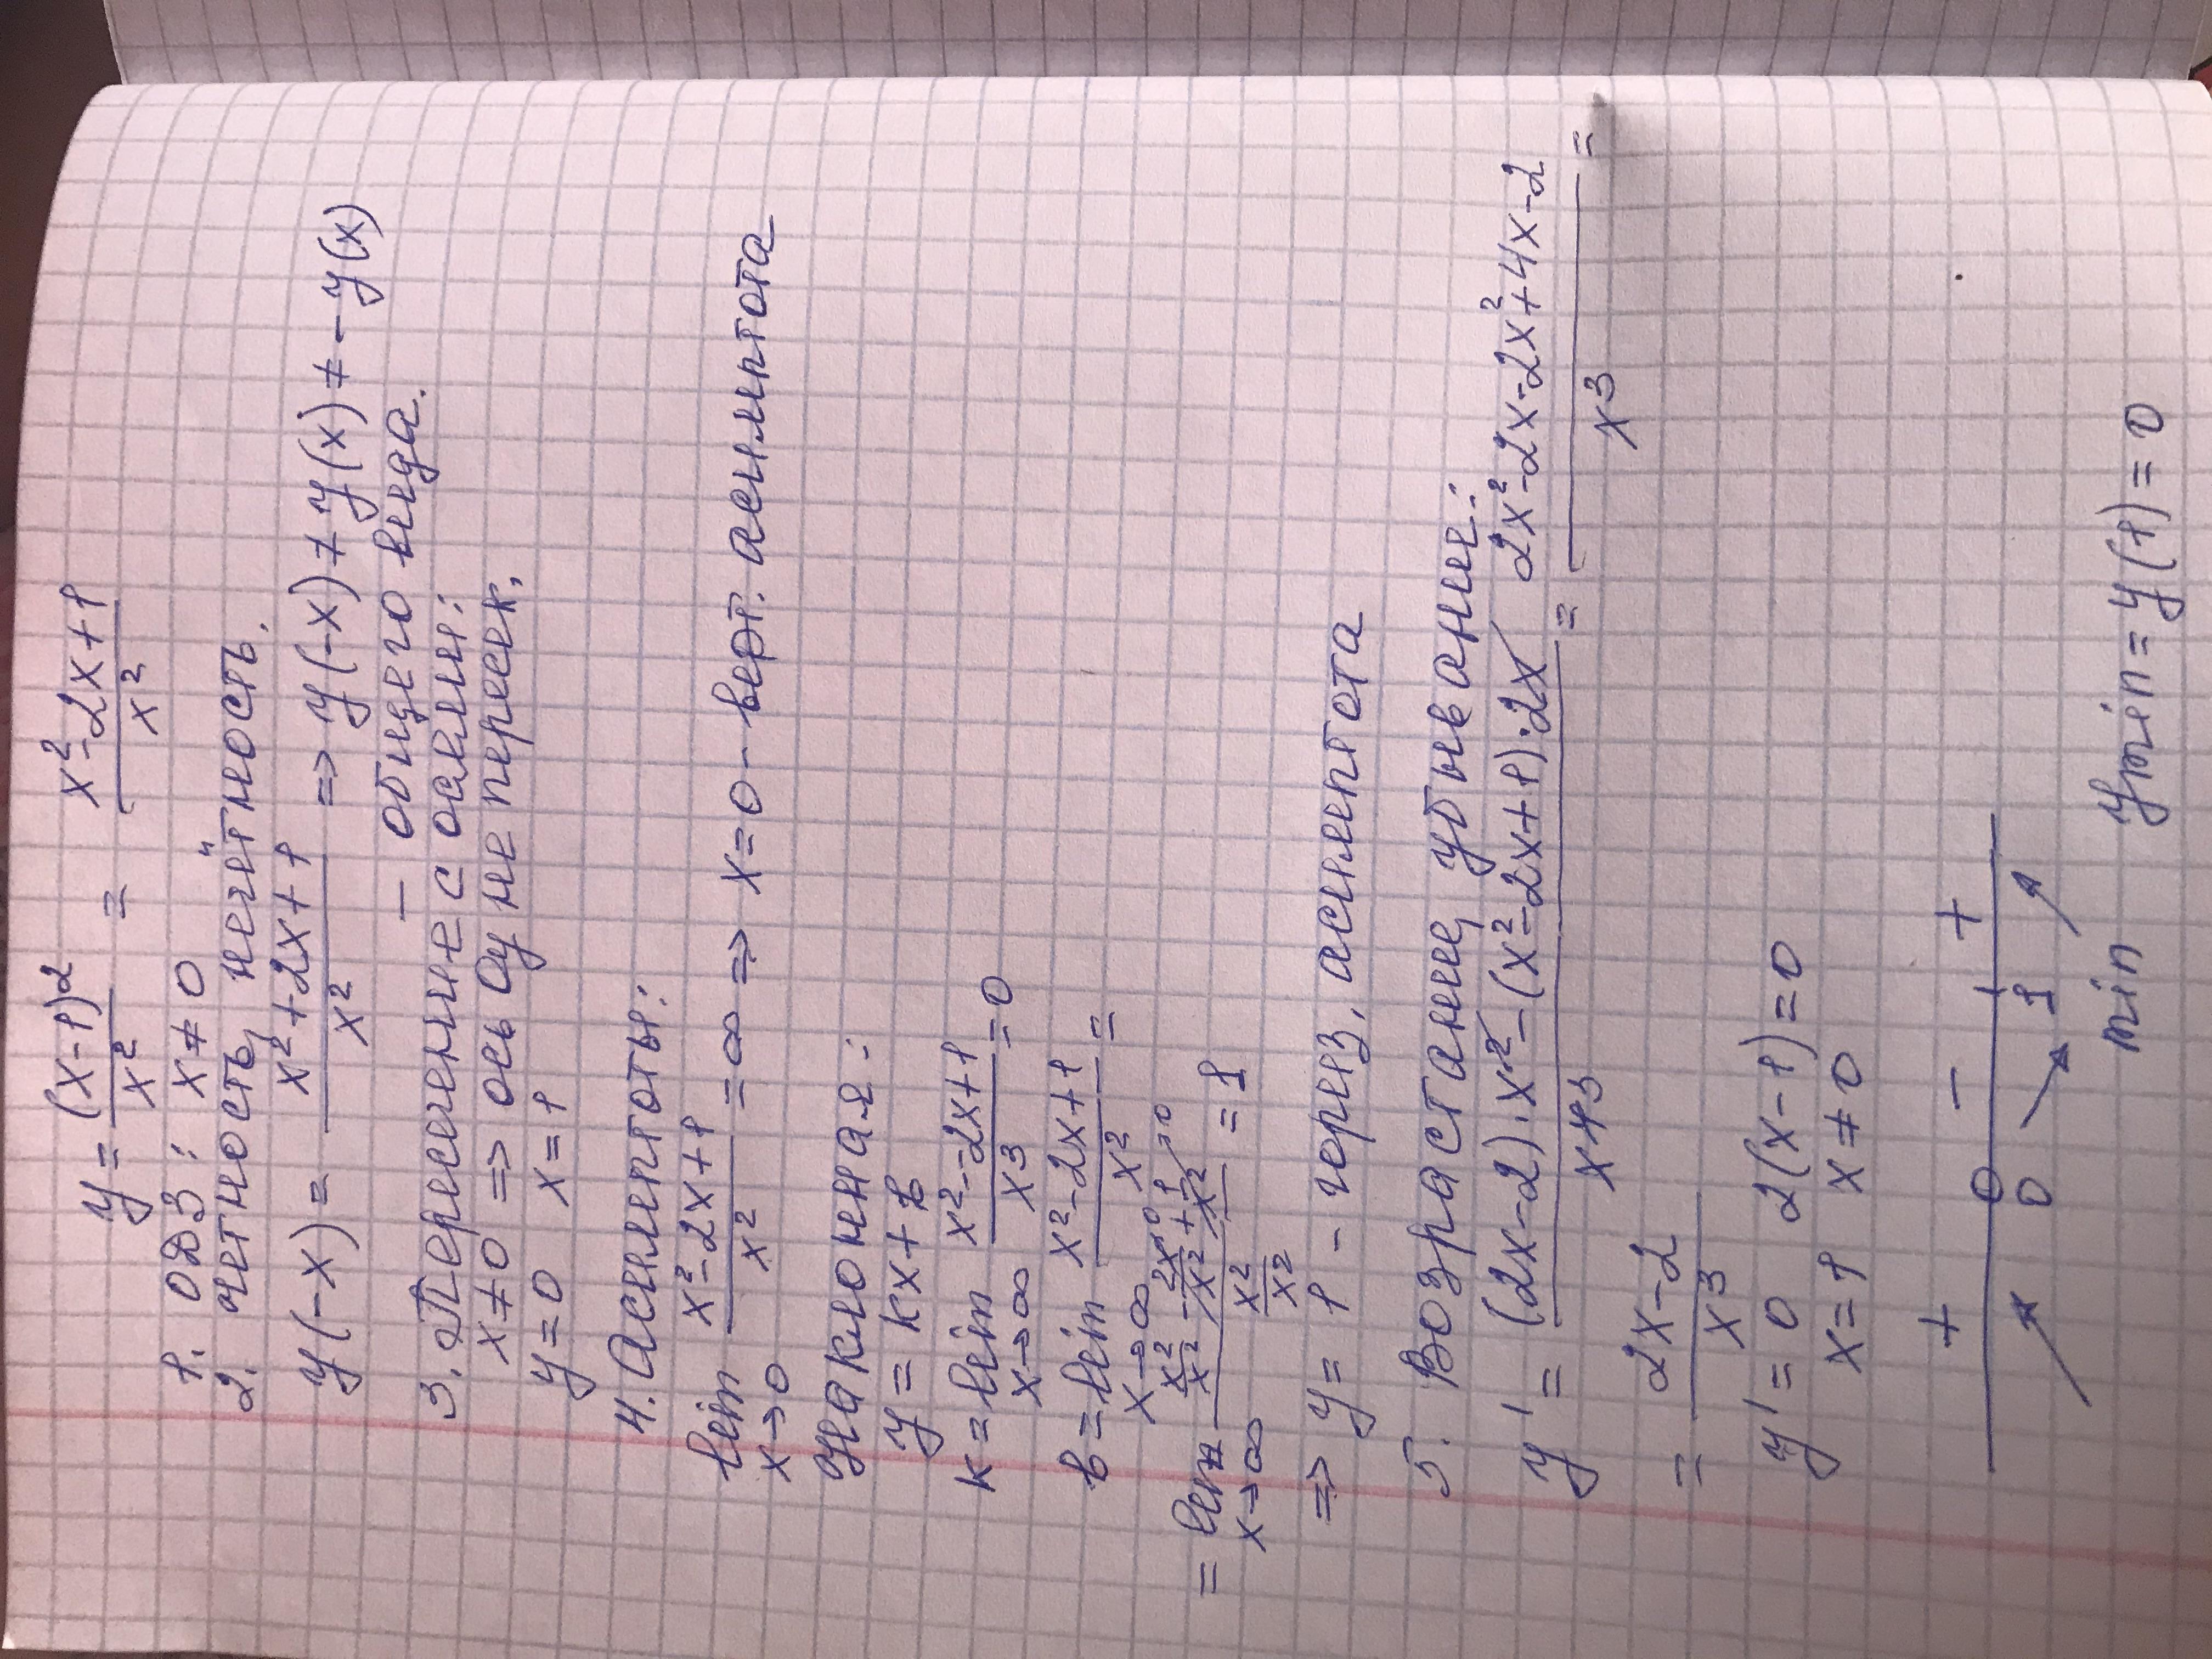 y = (x-1)² / x² = x²-2x+1 / x²
1. ОДЗ: x ≠ 0
2. четность, нечётность.
y(-x) = x²+2x+1 / x² => y(-x) ≠ y(x) ≠ -y(x)
— общего вида.
3. Пересечение с осями:
x ≠ 0 => ось Oy не пересек.
y = 0 x = 1
4. Асимптоты:
lim x→0 x²-2x+1 / x² = ∞ => x = 0 - верт. асимптота
Наклонная:
y = kx + b
k = lim x→∞ x²-2x+1 / x³ = 0
b = lim x→∞ x²-2x+1 / x² =
= lim x→∞ x²/x² - 2x/x² + 1/x² / x²/x² = 1
=> y = 1 - гориз. асимптота
5. Возрастание, убывание:
y' = (2x-2)·x² - (x²-2x+1)·2x / x⁴ 3 = 2x²-2x-2x²+4x-2 / x³ =
= 2x-2 / x³
y' = 0 2(x-1) = 0
x = 1 x ≠ 0
+ - +
0 1
min
y min = y(1) = 0